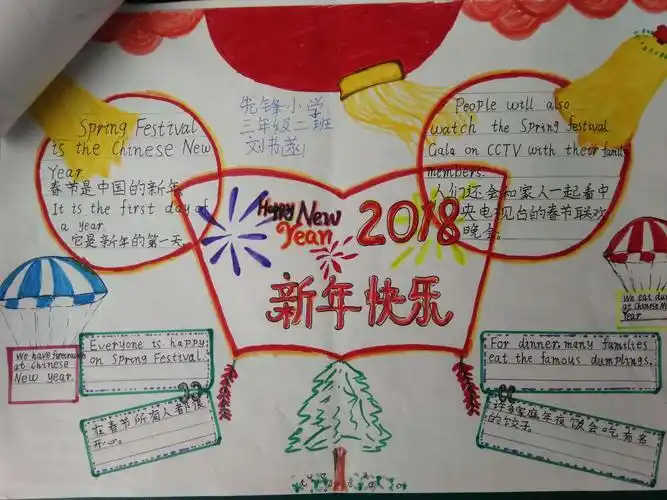 先锋小学
三年级二班
Spring Festival
is the Chinese New
Year
春节是中国的新年
It is the first day of
a year.
它是新年的第一天
People will also
watch the Spring festival
Gala on CCTV with their family
members.
人们还会和家人一起看中
央电视台的春节联欢
晚会。
Happy New
Year
2018
新年快乐
We have firecrackers
at Chinese
New year.
Everyone is happy
on Spring Festival.
在春节所有人都很
开心。
We eat
at Chinese
Year
For dinner, many families
eat the famous dumplings.
家庭年夜饭会吃有名
的饺子。